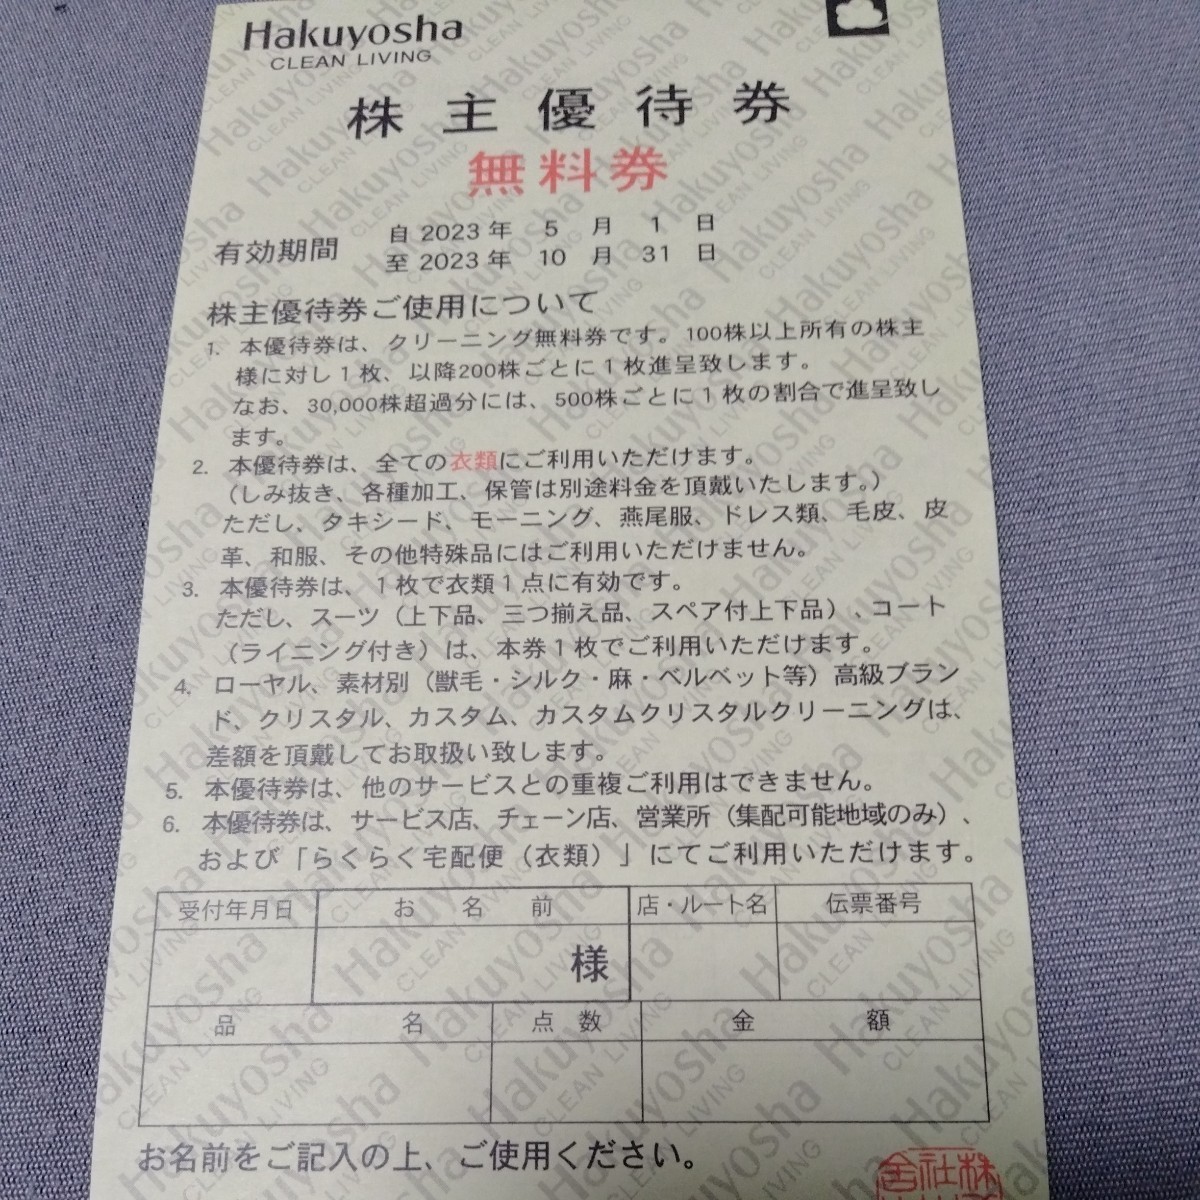 Hakuyosha
CLEAN LIVING
株主優待券
無料券
有効期間
自 2023 年 5 月 1 日
至 2023 年 10 月 31 日
株主優待券ご使用について
1. 本優待券は、クリーニング無料券です。100株以上所有の株主
様に対し1枚、以降200株ごとに1枚進呈致します。
なお、30,000株超過分には、500株ごとに1枚の割合で進呈致し
ます。
2. 本優待券は、全ての衣類にご利用いただけます。
（しみ抜き、各種加工、保管は別途料金を頂戴いたします。）
ただし、タキシード、モーニング、燕尾服、ドレス類、毛皮、皮
革、和服、その他特殊品にはご利用いただけません。
3. 本優待券は、1枚で衣類1点に有効です。
ただし、スーツ（上下品、三つ揃え品、スペア付上下品）、コート
（ライニング付き）は、本券1枚でご利用いただけます。
4. ローヤル、素材別（獣毛・シルク・麻・ベルベット等）高級ブラン
ド、クリスタル、カスタム、カスタムクリスタルクリーニングは、
差額を頂戴してお取扱い致します。
5. 本優待券は、他のサービスとの重複ご利用はできません。
6. 本優待券は、サービス店、チェーン店、営業所（集配可能地域のみ）、
および「らくらく宅配便（衣類）」にてご利用いただけます。
受付年月日 お名前 店・ルート名 伝票番号
様
品名 点数 金額
お名前をご記入の上、ご使用ください。